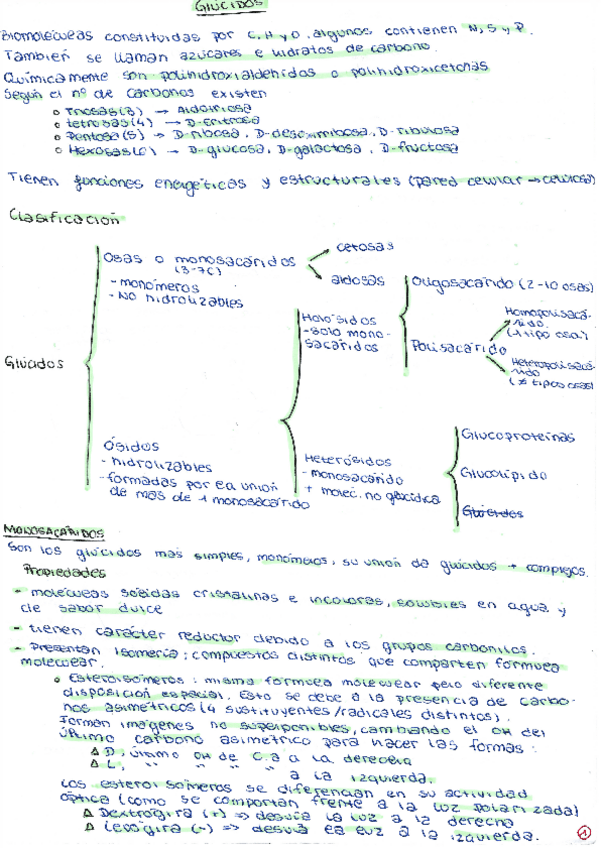 GLÚCIDOS
Biomoléculas constituidas por C, H y O. algunos contienen N, S y P.
También se llaman azúcares e hidratos de carbono.
Químicamente son polihidroxialdehidos o polihidroxicetonas
Según el nº de carbonos existen
o Triosas(3) → Aldotriosa
o tetrosas(4) → D-Eritrosa
o Pentosa(5) → D-ribosa, D-desoxirribosa, D-ribulosa
o Hexosas(6) → D-glucosa, D-galactosa, D-fructosa
Tienen funciones energéticas y estructurales (pared celular → celulosa)
Clasificación
Glúcidos
Osas o monosacáridos
(3-7C)
- monómeros
- NO hidrolizables
cetosas
aldosas
Ósidos
- hidrolizables
- formadas por la unión
de más de 1 monosacárido
Holósidos
- solo mono-
sacáridos
Oligosacárido (2-10 osas)
Polisacárido
Homopolisacá-
rido
(1 tipo osa)
Heteropolisacá-
rido
(≠ tipos osas)
Heterósidos
- monosacárido
+ molec. no glucídica
Glucoproteínas
Glucolípido
Glúcidos
MONOSACÁRIDOS
Son los glúcidos más simples, monómeros, su unión da glúcidos + complejos.
Propiedades
- moléculas sólidas cristalinas e incoloras, solubles en agua y
de sabor dulce
- tienen carácter reductor debido a los grupos carbonilos.
- Presentan isomería: compuestos distintos que comparten fórmula
molecular.
o Estereoisómeros: misma fórmula molecular pero diferente
disposición espacial. Esto se debe a la presencia de carbo-
nos asimétricos (4 sustituyentes/radicales distintos).
Forman imágenes no superponibles, cambiando el OH del
último carbono asimétrico para hacer las formas:
Δ D, último OH de C.a a la derecha
Δ L, " " " " a la izquierda.
Los estereoisómeros se diferencian en su actividad
óptica (como se comportan frente a la luz polarizada)
Δ Dextrógira (+) => desvía la luz a la derecha
Δ Levógira (-) => desvía la luz a la izquierda.
1